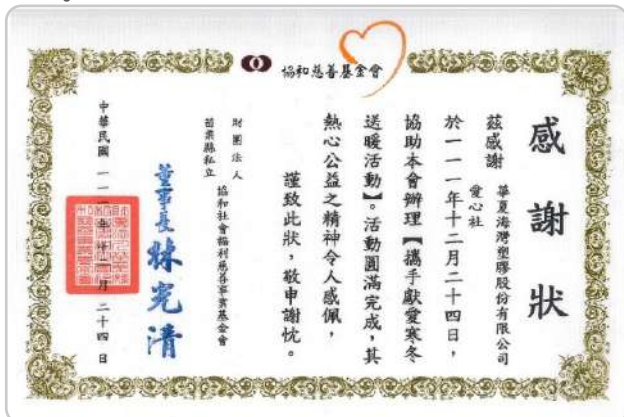 協和慈善基金會
感謝狀
茲感謝
華夏海灣塑膠股份有限公司
愛心社
於一一一年十二月二十四日，
協助本會辦理【攜手獻愛寒冬
送暖活動】。活動圓滿完成，其
熱心公益之精神令人感佩，
謹致此狀，敬申謝忱。
財團法人
苗栗縣私立
協和社會福利慈善事業基金會
董事長 林光清
中華民國一一一年十二月二十四日